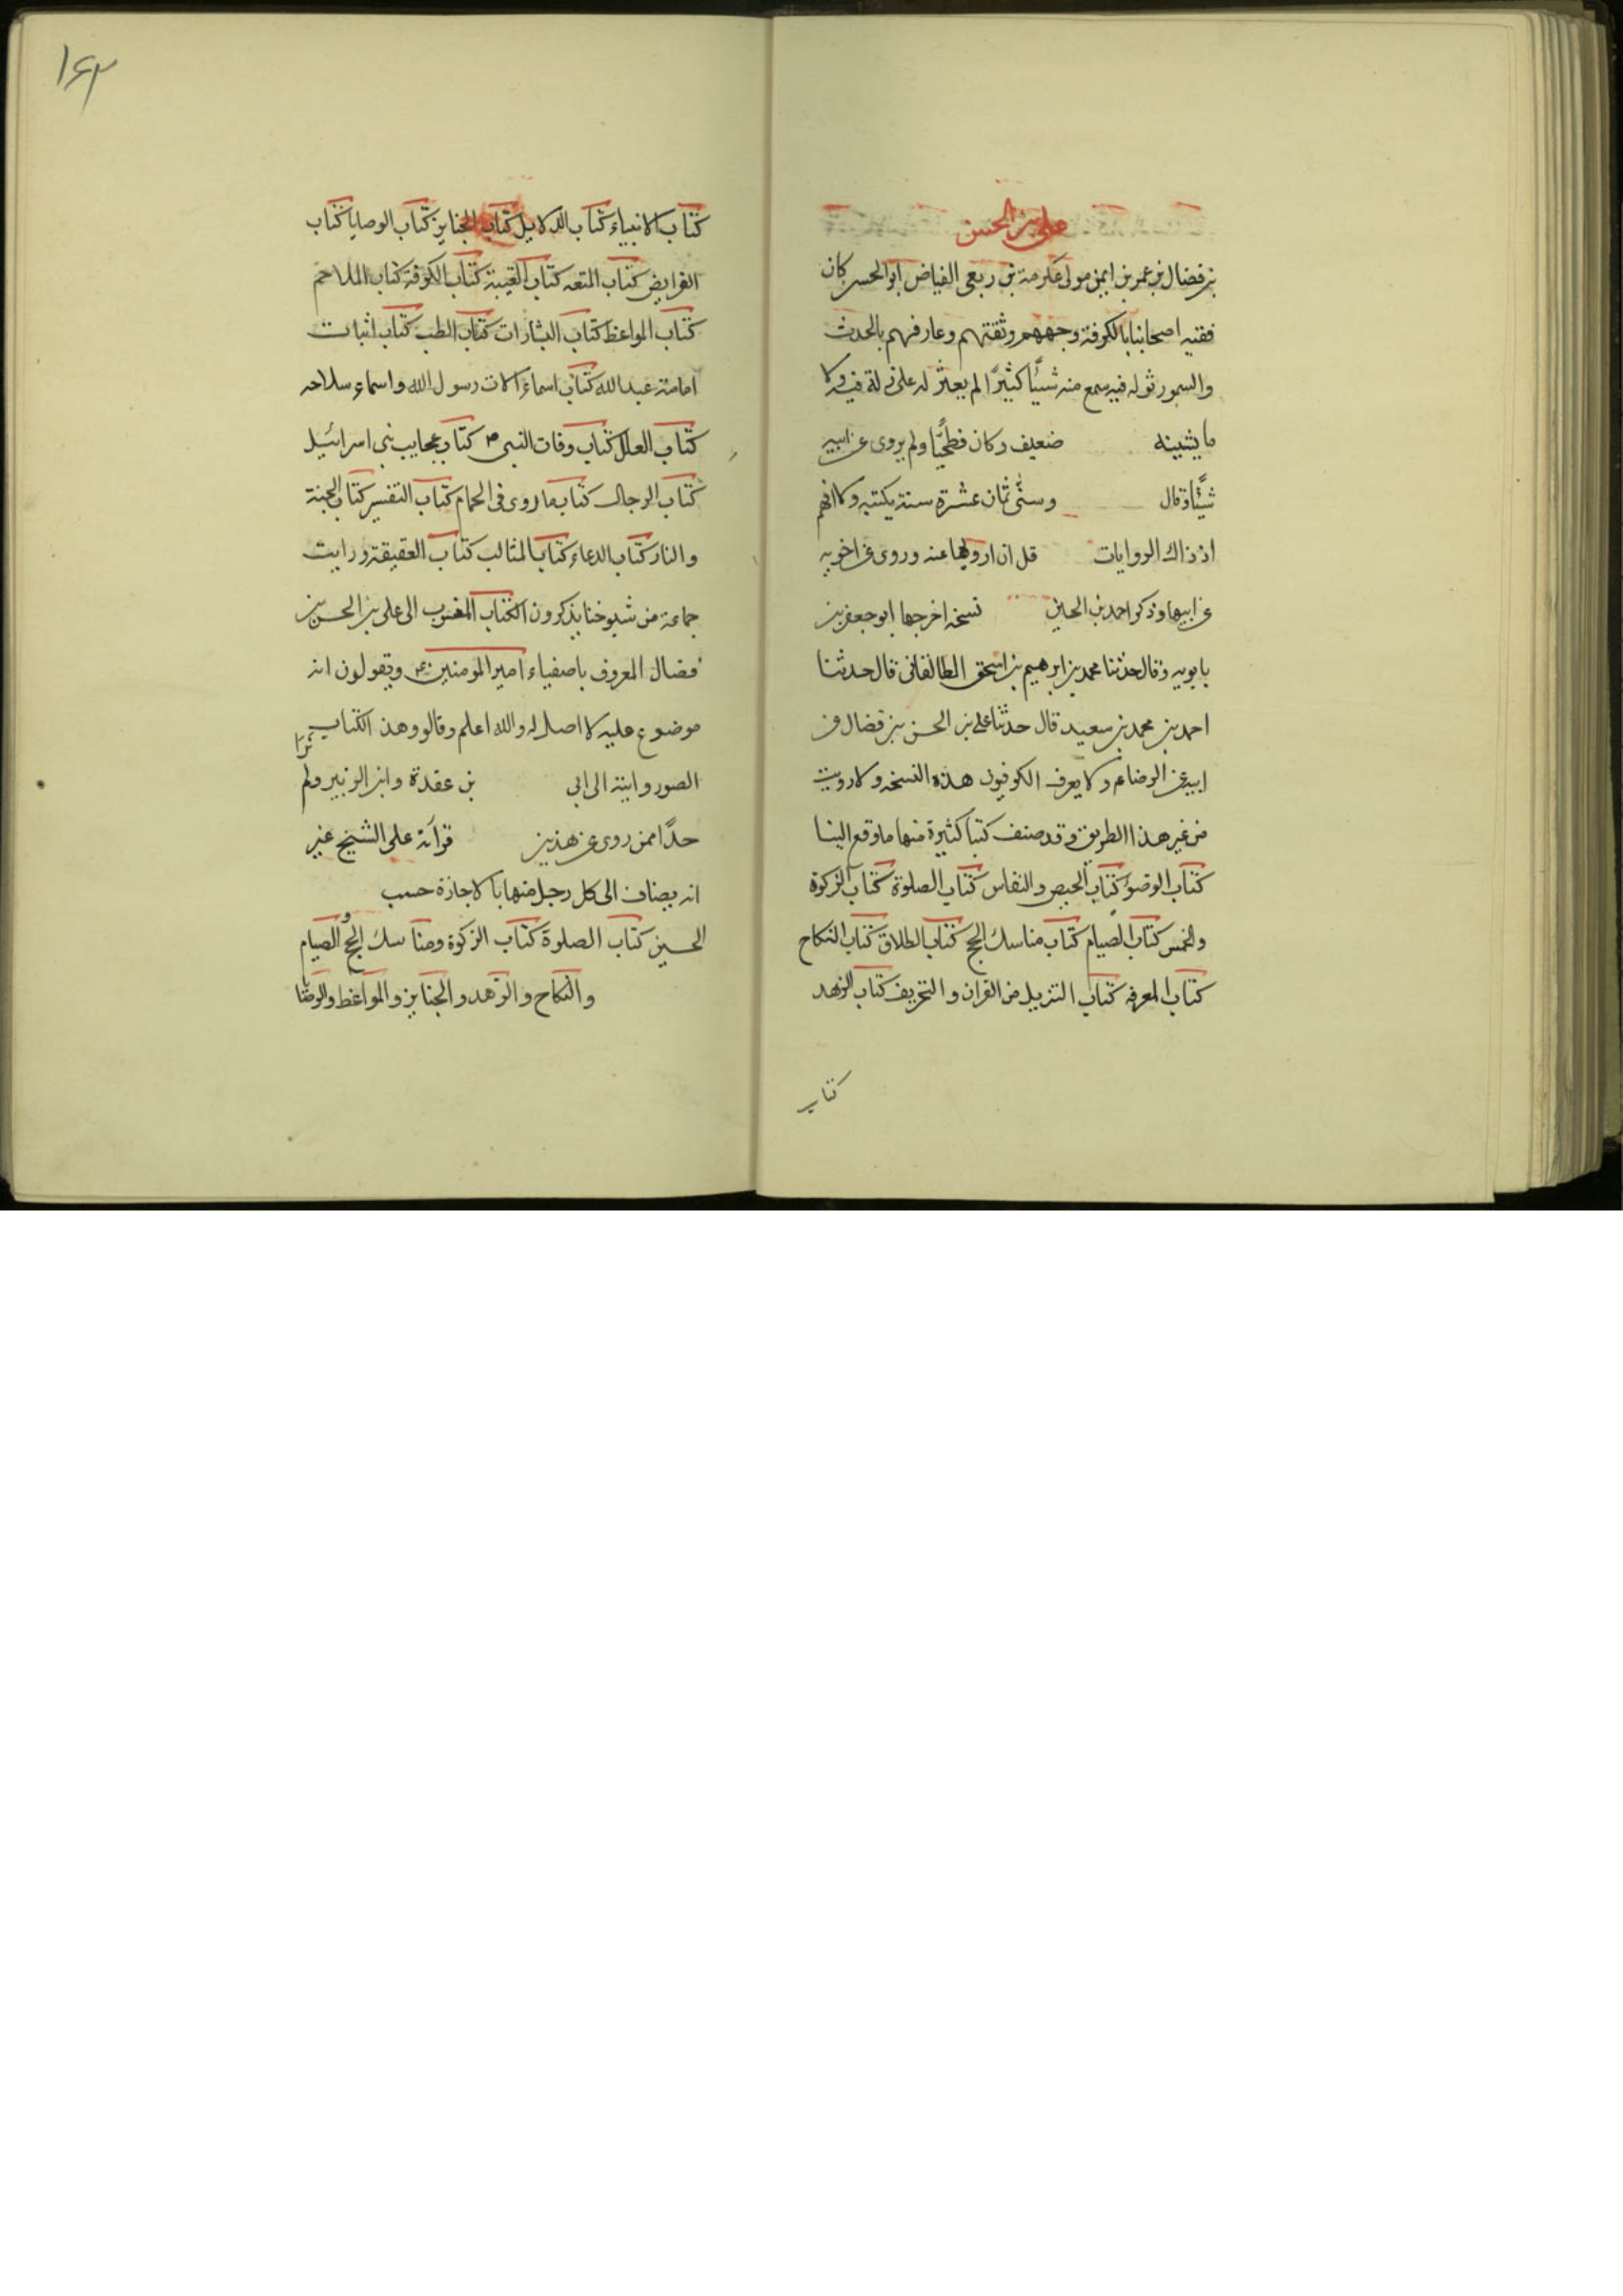 علي بن الحسن
بن فضال بن عمر بن ايمن مولى عكرمة بن ربعي الفياض ابو الحسن كان
فقيه اصحابنا بالكوفة ووجههم وثقتهم وعارفهم بالحديث
والسمور ثوله فيه سمع منه شيئًا كثيرًا لم يعثر له على زلة فيه ولا
ما يشينه ضعيف وكان فطحيًا ولم يروى عن ابيه
شيئًا وقال وسنى ثمان عشرة سنة بكتبه ولا افهم
اذ ذاك الروايات قل ان ارويها عنه وروى عن اخويه
عن ابيهما وذكر احمد بن الحسين نسخه اخرجها ابو جعفر بن
بابويه وقال حدثنا محمد بن ابرهيم بن اسحق الطالقاني قال حدثنا
احمد بن محمد بن سعيد قال حدثنا علي بن الحسن بن فضال عن
ابيه عن الرضا ع ولا يعرف الكوفيون هذه النسخه ولا رويت
من غير هذا الطريق وقد صنف كتبا كثيرة منها ما وقع الينا
كتاب الوضوء كتاب الحيض والنفاس كتاب الصلوة كتاب الزكوة
والخمس كتاب الصيام كتاب مناسك الحج كتاب الطلاق كتاب النكاح
كتاب المعرفه كتاب التنزيل من القران والتحريف كتاب الزهد
كتاب
١٤٢
كتاب الانبياء كتاب الدلايل كتاب الجنايز كتاب الوصايا كتاب
الفرايض كتاب المتعه كتاب الغيبة كتاب الكوفة كتاب الملاحم
كتاب المواعظ كتاب البشارات كتاب الطب كتاب اثبات
امامة عبد الله كتاب اسماء الات رسول الله واسماء سلاحه
كتاب العلل كتاب وفات النبي ص كتاب عجايب بني اسرائيل
كتاب الرجال كتاب ما روى في الحمام كتاب التفسير كتاب الجنة
والنار كتاب الدعاء كتاب المثالب كتاب العقيقة ورايت
جماعة من شيوخنا يذكرون الكتاب المنسوب الى علي بن الحسن بن
فضال المعروف باصفياء امير المومنين ع ويقولون انه
موضوع عليه لا اصل له والله اعلم وقالو وهذ الكتاب
الصور وايته الى ابي بن عقدة وابن الزبير ولم نرا
حدًا ممن روى عن هذين قراته على الشيخ غير
انه يضاف الى كل رجل منهما بالاجازة حسب
الحسين كتاب الصلوة كتاب الزكوة ومناسك الحج والصيام
والنكاح والزهد والجنايز والمواعظ والوصايا